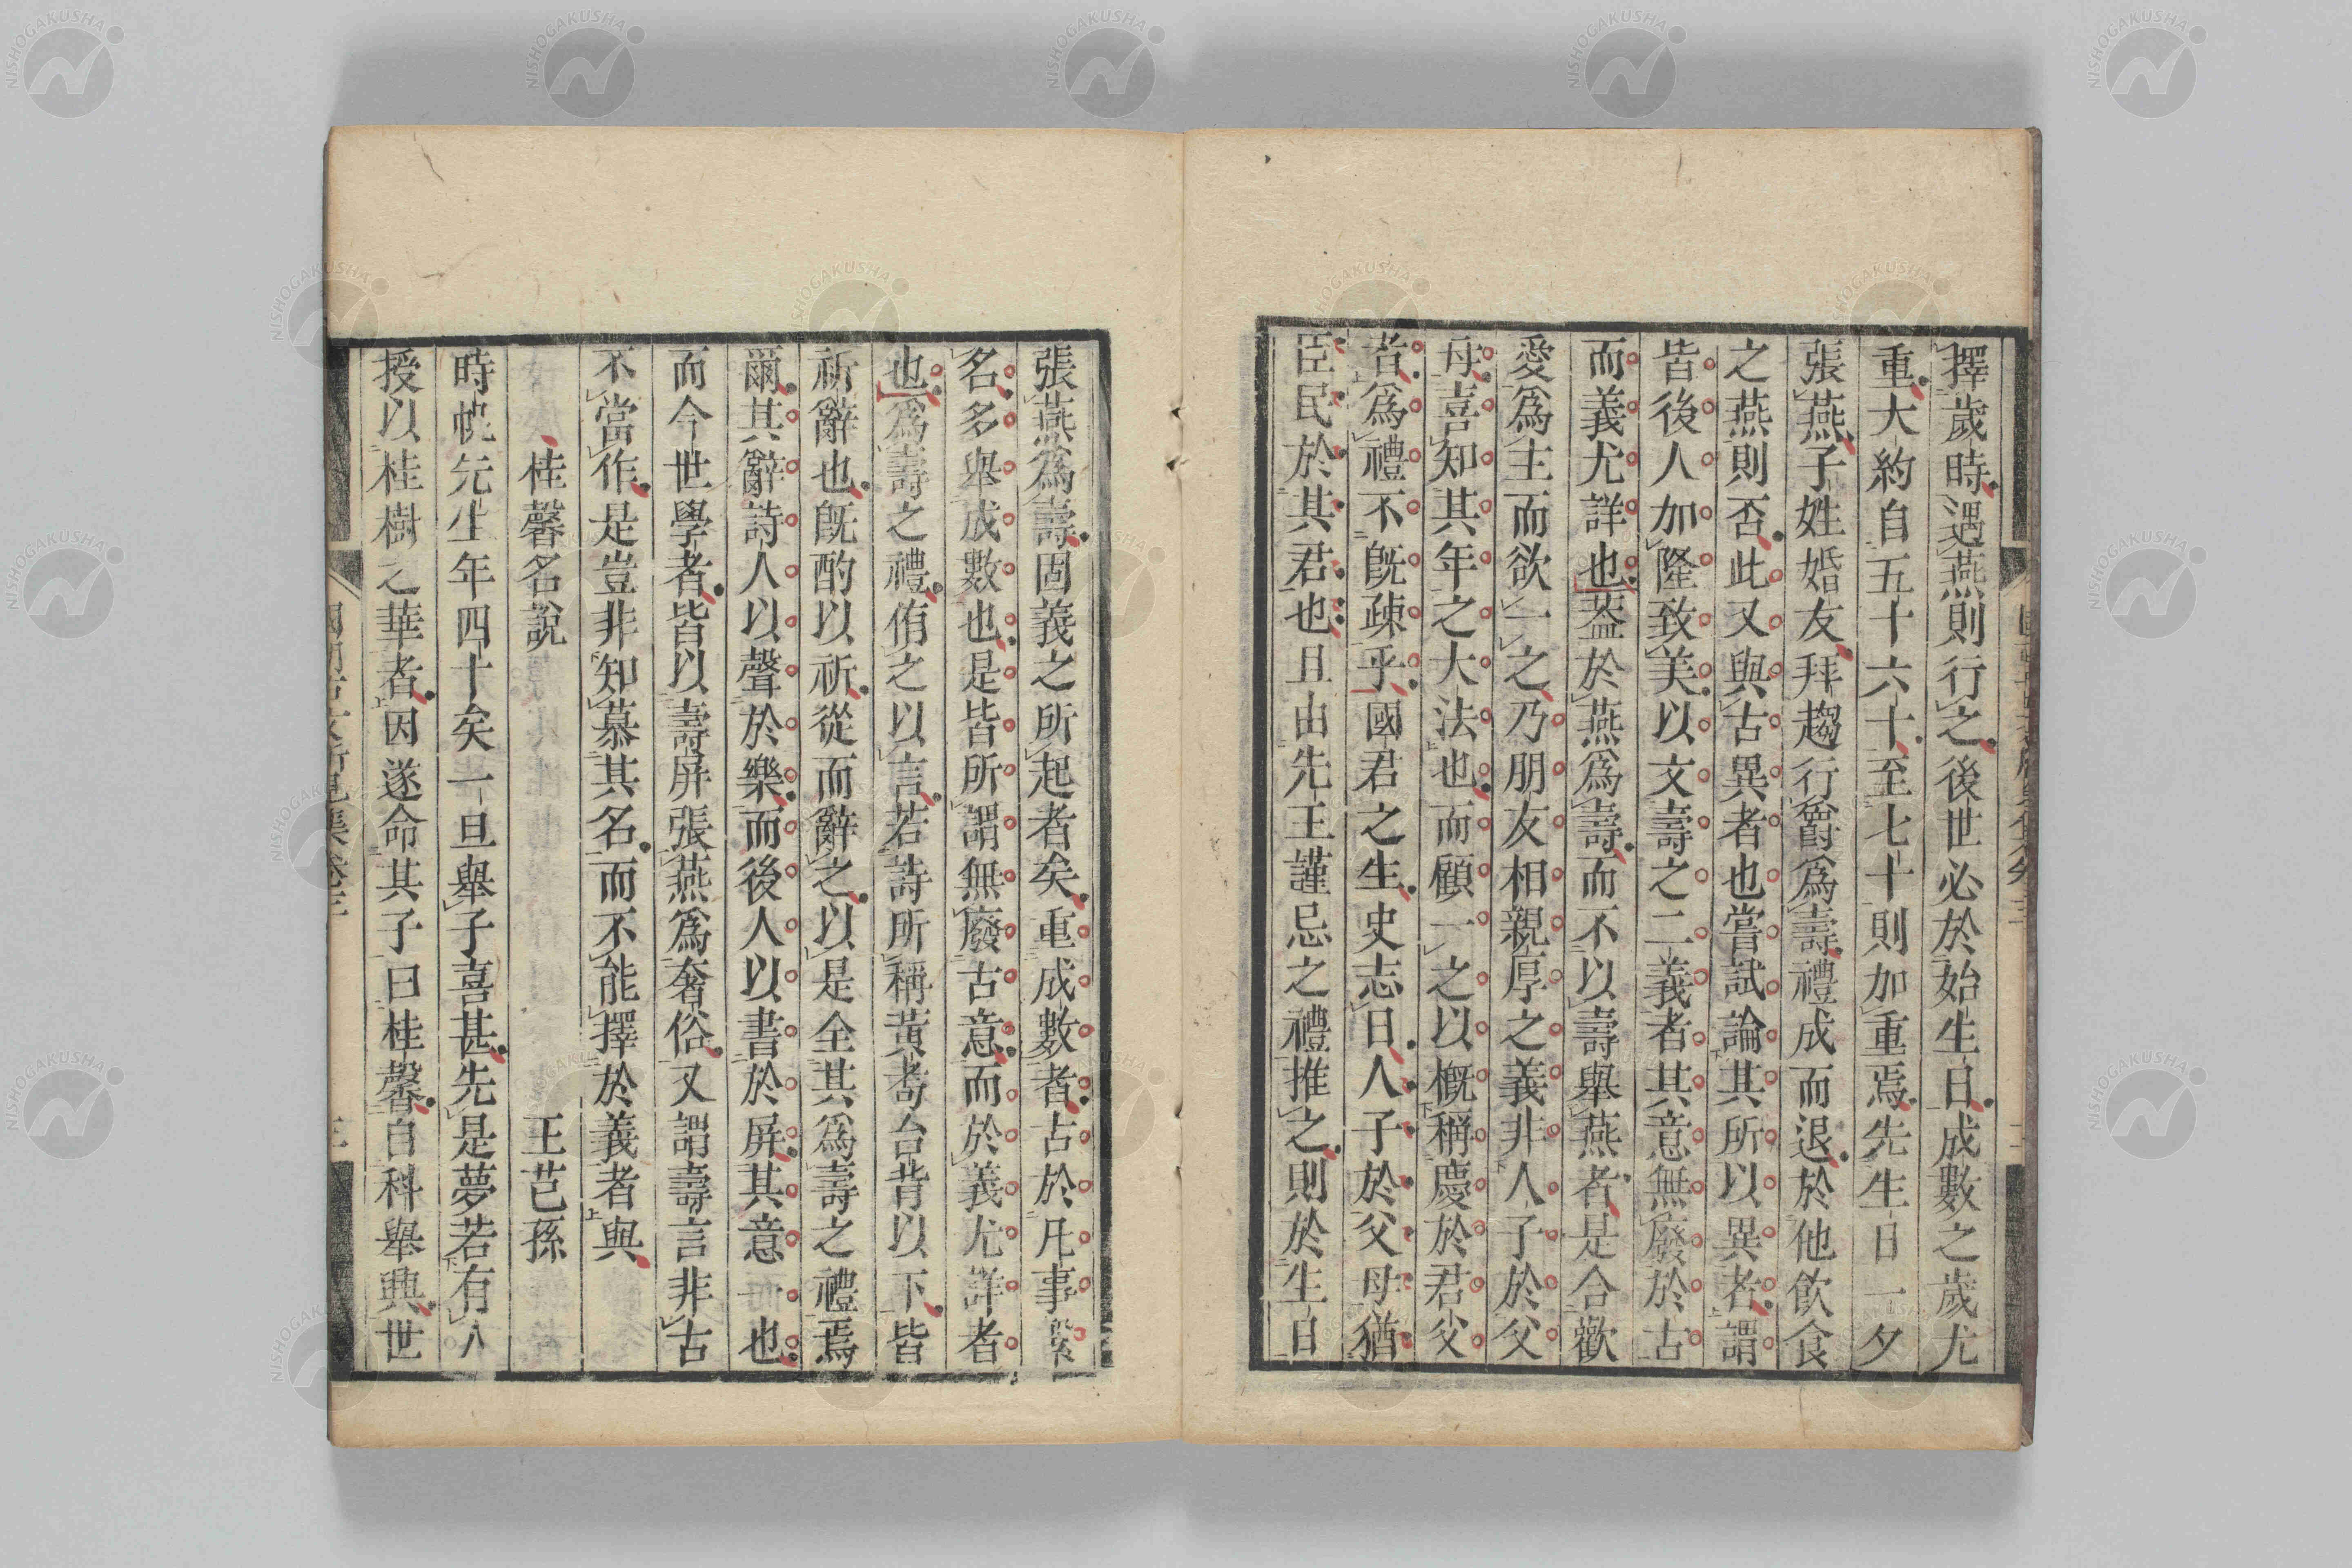 擇歲時遇燕則行之後世必於始生日成數之歲尤
重大約自五十六十至七十則加重焉先生日一夕
張燕子姓婚友拜趨行爵爲壽禮成而退於他飲食
之燕則否此又與古異者也嘗試論其所以異者謂
皆後人加隆致美以文壽之二義者其意無廢於古
而義尤詳也葢於燕爲壽而不以壽舉燕者是合歡
愛爲主而欲一之乃朋友相親厚之義非人子於父
母喜知其年之大法也而顧一之以槪稱慶於君父
者爲禮不旣疎乎國君之生史志日人子於父母猶
臣民於其君也且由先王謹忌之禮推之則於生日
張燕爲壽固義之所起者矣重成數者古於凡事
名多舉成數也是皆所謂無廢古意而於義尤詳者
也爲壽之禮侑之以言若詩所稱黃耇台背以下皆
祈辭也旣酌以祈從而辭之以是全其爲壽之禮焉
爾其辭詩人以聲於樂而後人以書於屏其意一也
而今世學者皆以壽屏張燕爲奢俗又謂壽言非古
不當作是豈非知慕其名而不能擇於義者與
桂馨名說 王芑孫
時帆先生年四十矣一旦舉子喜甚先是夢若有人
授以桂樹之華者因遂命其子曰桂馨自科舉興世